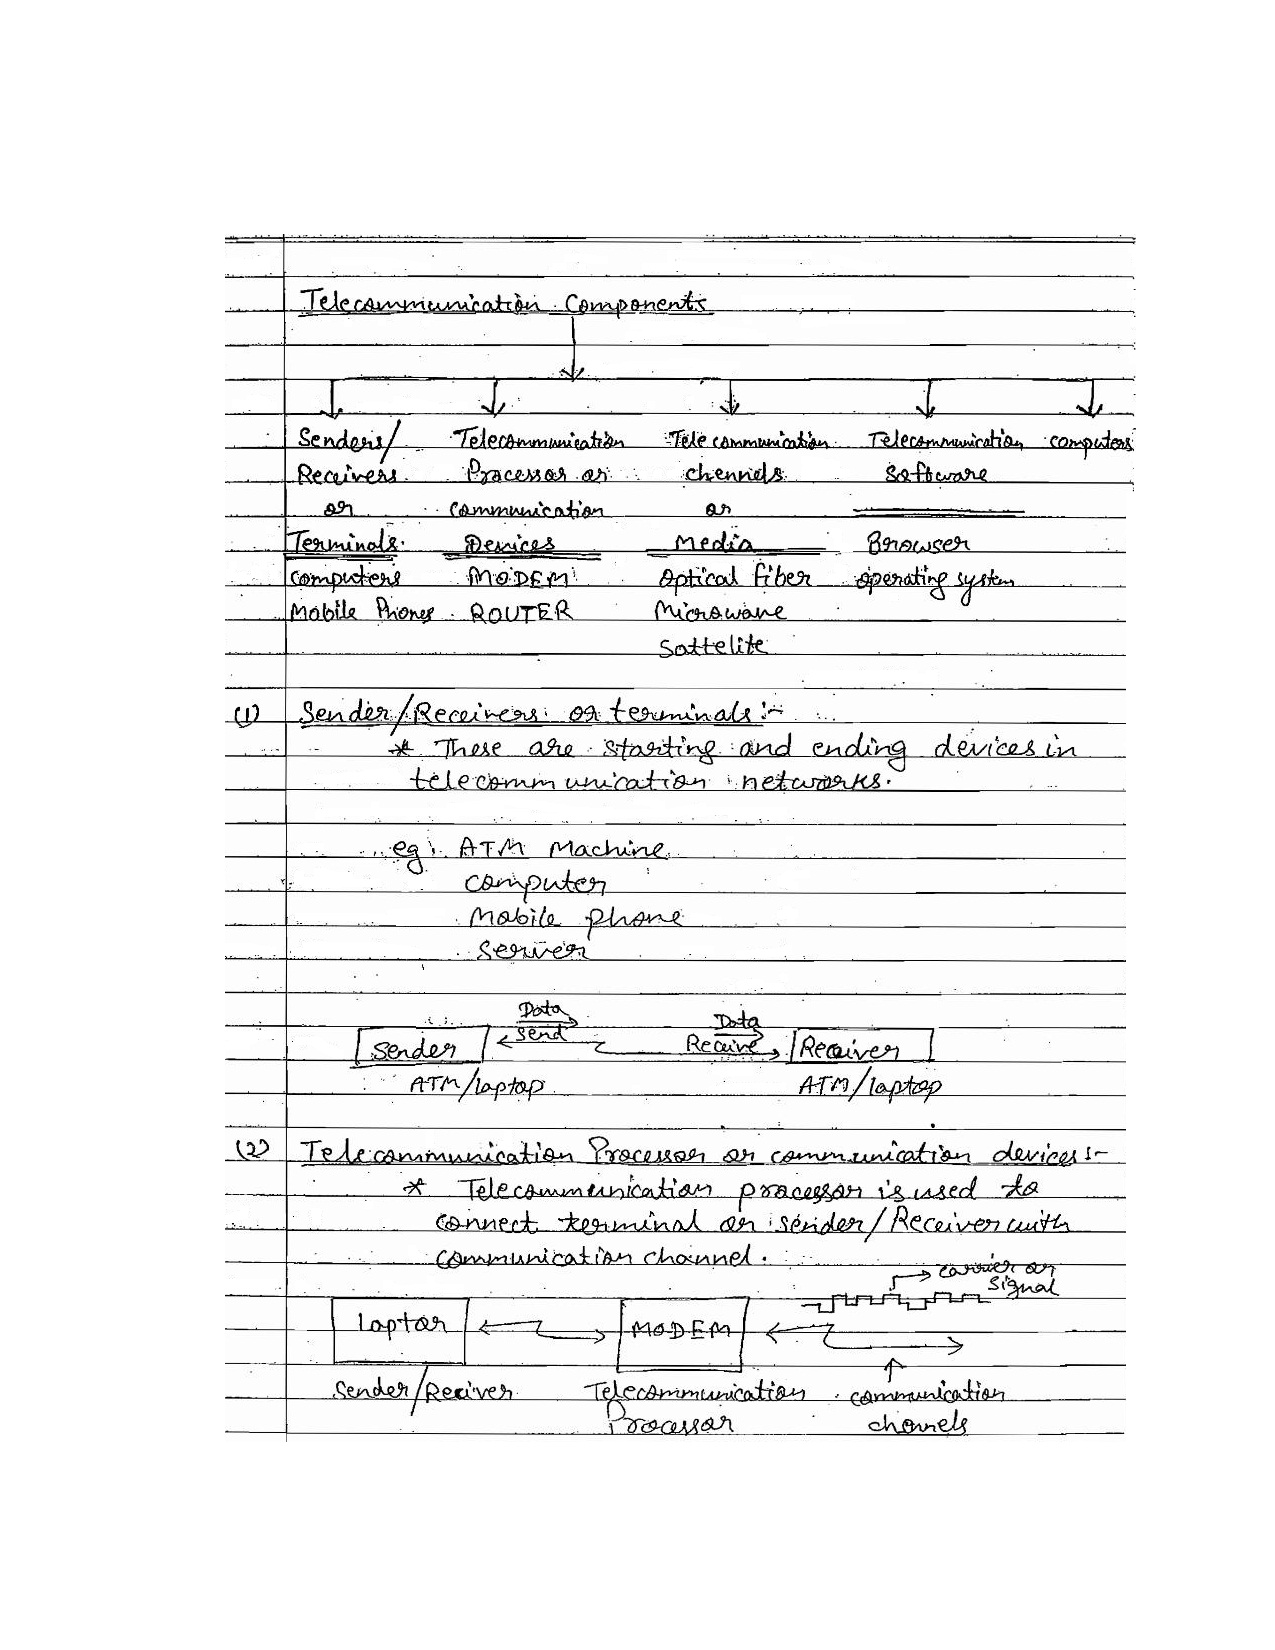 Telecommunication Components
Senders/ Telecommunication Telecommunication Telecommunication computers
Receivers Processor or chennels Software
or communication or
Terminals Devices Media Browser
computers MODEM Optical fiber operating system
Mobile Phones ROUTER Microwave
Sattelite
(1) Sender/Receivers or terminals:-
* These are starting and ending devices in
telecommunication networks.
eg: ATM Machine
computer
Mobile phone
Server
Data
Send
Data
Receive
Sender Receiver
ATM/laptop ATM/laptop
(2) Telecommunication Processor or communication devices:-
* Telecommunication processor is used to
connect terminal or sender/Receiver with
communication channel.
carrier or
signal
laptor MODEM
Sender/Reciver Telecommunication communication
Processor channels